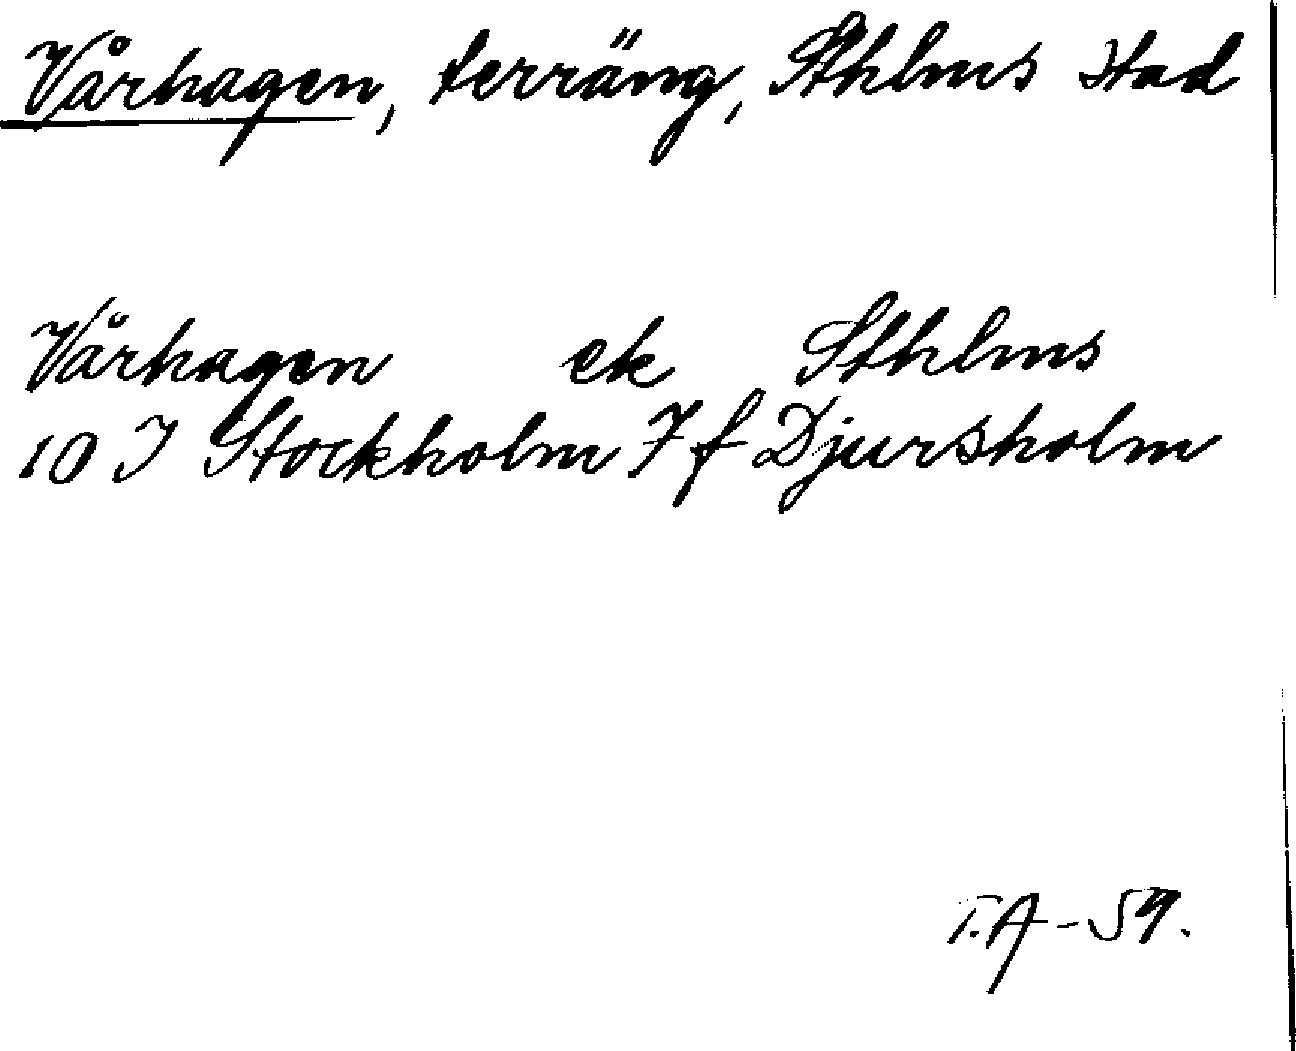 Vårhagen, terräng, Sthlms stad
Vårhagen ek Sthlms
10 I Stockholm 7 f Djursholm
T.A - 59.